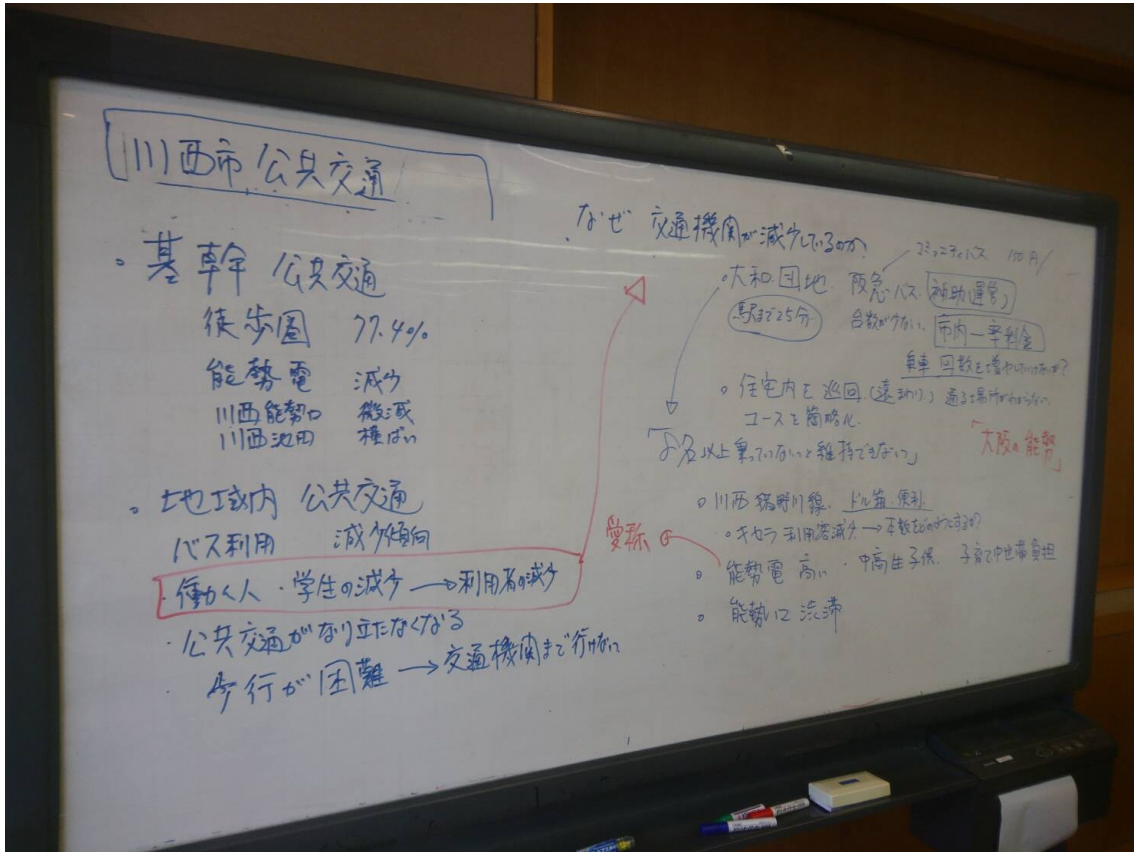 川西市 公共交通
。基幹 公共交通
徒歩圏 77.4%
能勢電 減少
川西能勢口 微減
川西池田 横ばい
。地域内 公共交通
バス利用 減少傾向
・働く人・学生の減少→利用者の減少
・公共交通がなり立たなくなる
・歩行が困難→交通機関まで行けない
なぜ 交通機関が減少しているのか?
コミュニティバス 150円/
。大和団地 阪急バス 補助運営
駅まで25分 台数が少ない 市内一率料金
乗車回数を増やしていけないか?
。住宅内を巡回(遠まわり) 通る場所がわからない
コースを簡略化
名以上乗っていないと維持できない」
「大阪の能勢」
。川西猪野川線 ドル箱 便利
。キセラ利用者減少→本数をどのようにするか?
愛称
。能勢電 高い・中高生子供 子育て中世帯負担
。能勢口 渋滞